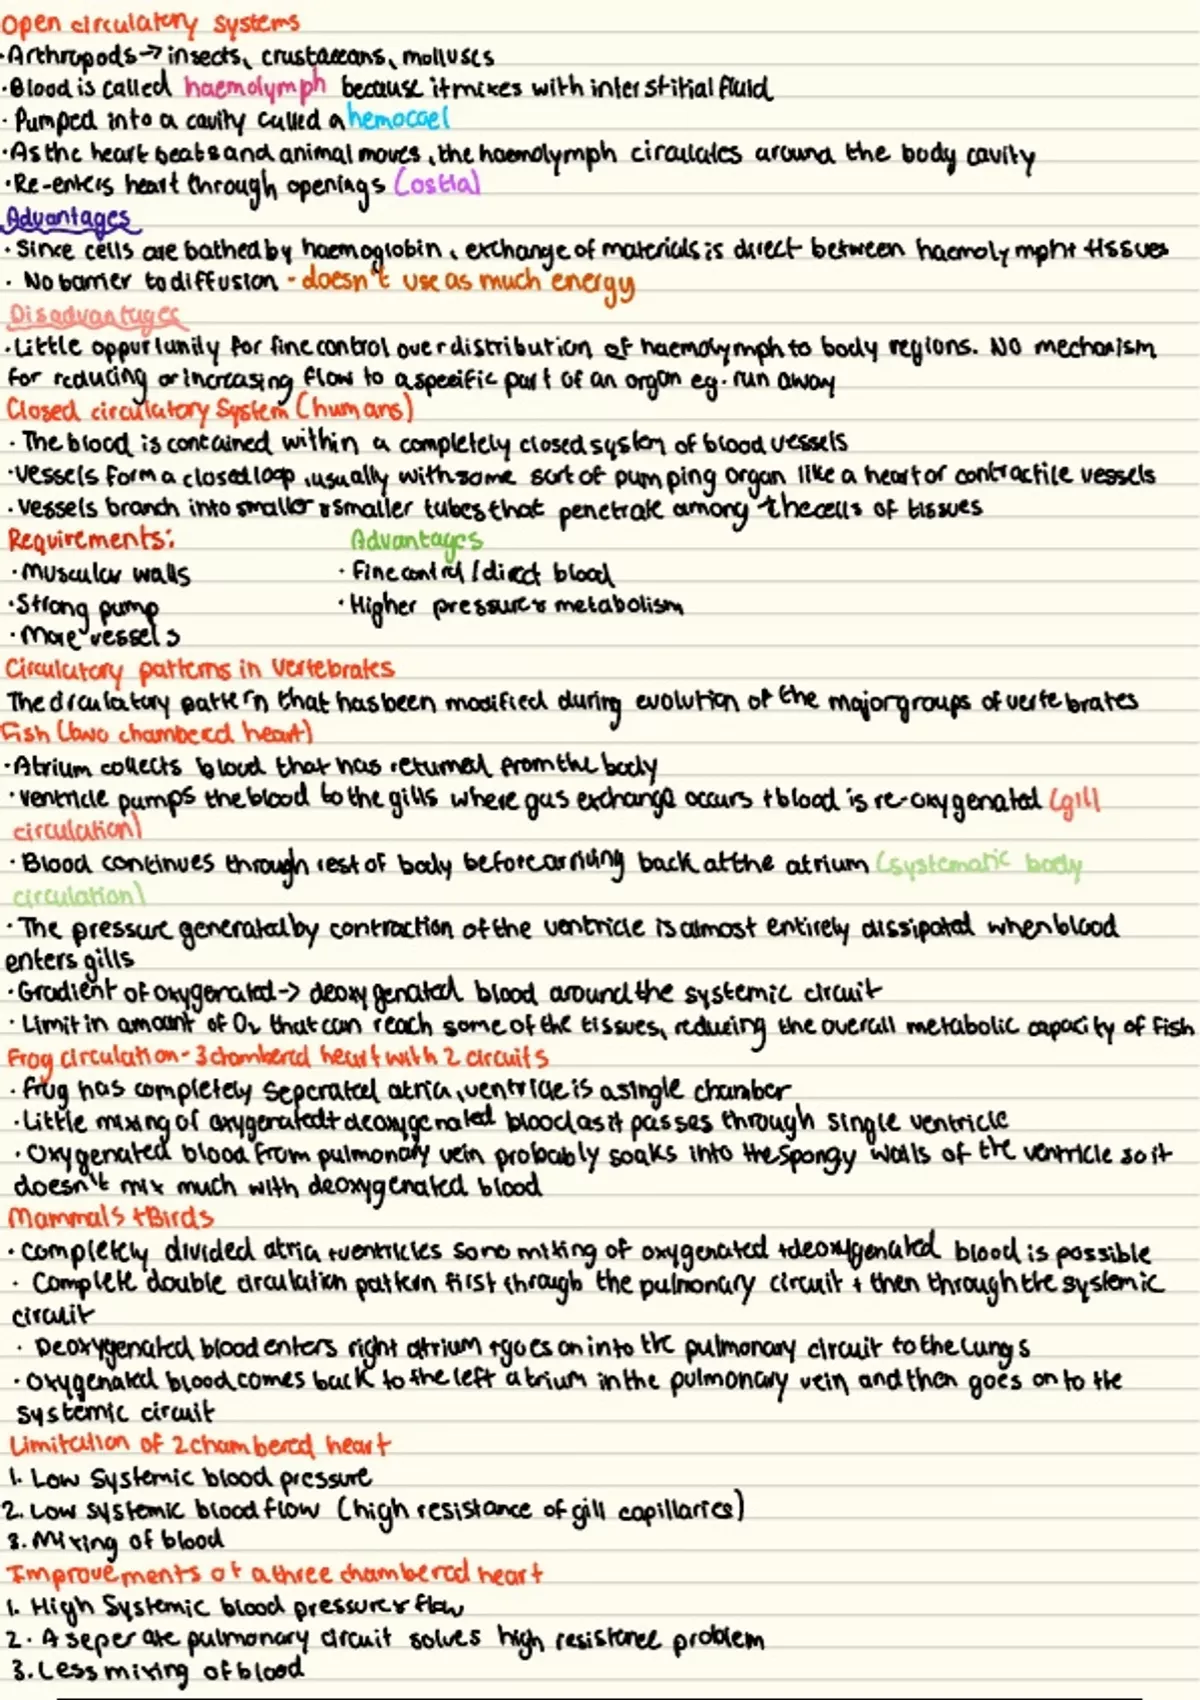 Open circulatory systems
·Arthropods→insects, crustaceans, molluscs
·Blood is called haemolymph because it mixes with interstitial fluid
·Pumped into a cavity called a hemocoel
·As the heart beats and animal moves, the haemolymph circulates around the body cavity
·Re-enters heart through openings (ostia)
Advantages
·Since cells are bathed by haemoglobin, exchange of materials is direct between haemolymph + tissues
· No barrier to diffusion - doesn't use as much energy
Disadvantages
·Little oppurtunity for fine control over distribution of haemolymph to body regions. No mechanism
for reducing or increasing flow to a specific part of an organ eg. run away
Closed circulatory System (humans)
· The blood is contained within a completely closed system of blood vessels
·vessels form a closed loop, usually with some sort of pumping organ like a heart or contractile vessels
·vessels branch into smaller & smaller tubes that penetrate among the cells of tissues
Requirements: Advantages
·Muscular walls · Fine control / direct blood
·Strong pump · Higher pressure & metabolism
·More vessels
Circulatory patterns in vertebrates
The circulatory pattern that has been modified during evolution of the major groups of vertebrates
Fish (two chambered heart)
·Atrium collects blood that has returned from the body
·ventricle pumps the blood to the gills where gas exchange occurs + blood is re-oxygenated (gill
circulation)
·Blood continues through rest of body before arriving back at the atrium (systematic body
circulation)
·The pressure generated by contraction of the ventricle is almost entirely dissipated when blood
enters gills
·Gradient of oxygenated-> deoxygenated blood around the systemic circuit
·Limit in amount of O₂ that can reach some of the tissues, reducing the overall metabolic capacity of fish
Frog circulation - 3 chambered heart with 2 circuits
· frog has completely seperated atria, ventricle is a single chamber
·Little mixing of oxygenated + deoxygenated blood as it passes through single ventricle
·Oxygenated blood from pulmonary vein probably soaks into the spongy walls of the ventricle so it
doesn't mix much with deoxygenated blood
Mammals + Birds
·completely divided atria + ventricles so no mixing of oxygenated + deoxygenated blood is possible
· Complete double circulation pattern first through the pulmonary circuit + then through the systemic
circuit
· Deoxygenated blood enters right atrium + goes on into the pulmonary circuit to the lungs
·Oxygenated blood comes back to the left atrium in the pulmonary vein and then goes on to the
systemic circuit
Limitation of 2 chambered heart
1. Low systemic blood pressure
2. Low systemic blood flow (high resistance of gill capillaries)
3. Mixing of blood
Improvements of a three chambered heart
1. High Systemic blood pressure & flow
2. A seperate pulmonary circuit solves high resistance problem
3. Less mixing of blood